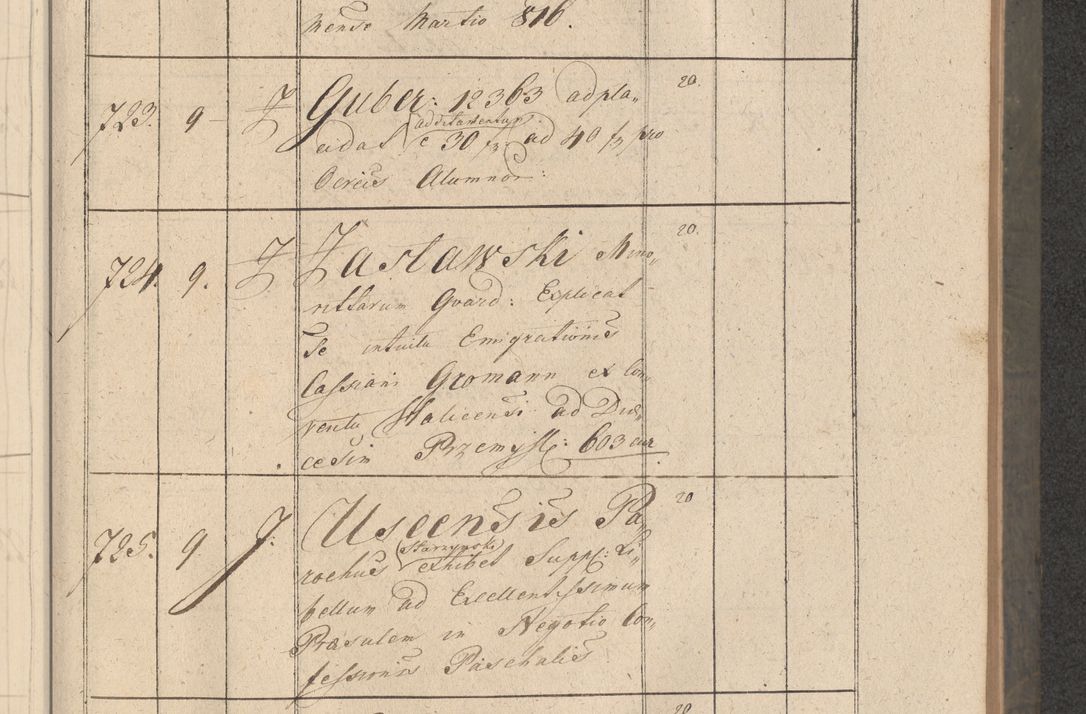 mense Martio 816.
723. 9 Guber: 12363 adpla„ 20.
additamentum
c 30 f ad 40 f pro
Ocreis Alumnor:
724. 9. Zasławski Mino„ 20.
rittarum Gvard: Explicat
Se intuitu Emigrationis
Cassiani Gromann ex Con„
ventu Halicensi ad Diæ„
cesim Przemysl: 603 cur
725. 9. J. Uscensis Pa„ 20
(Starzynski)
rochus exhibet Suppl: Li„
bellum ad Excellentissimum
Præsulem in Negotio Con„
fessionis Paschalis
20